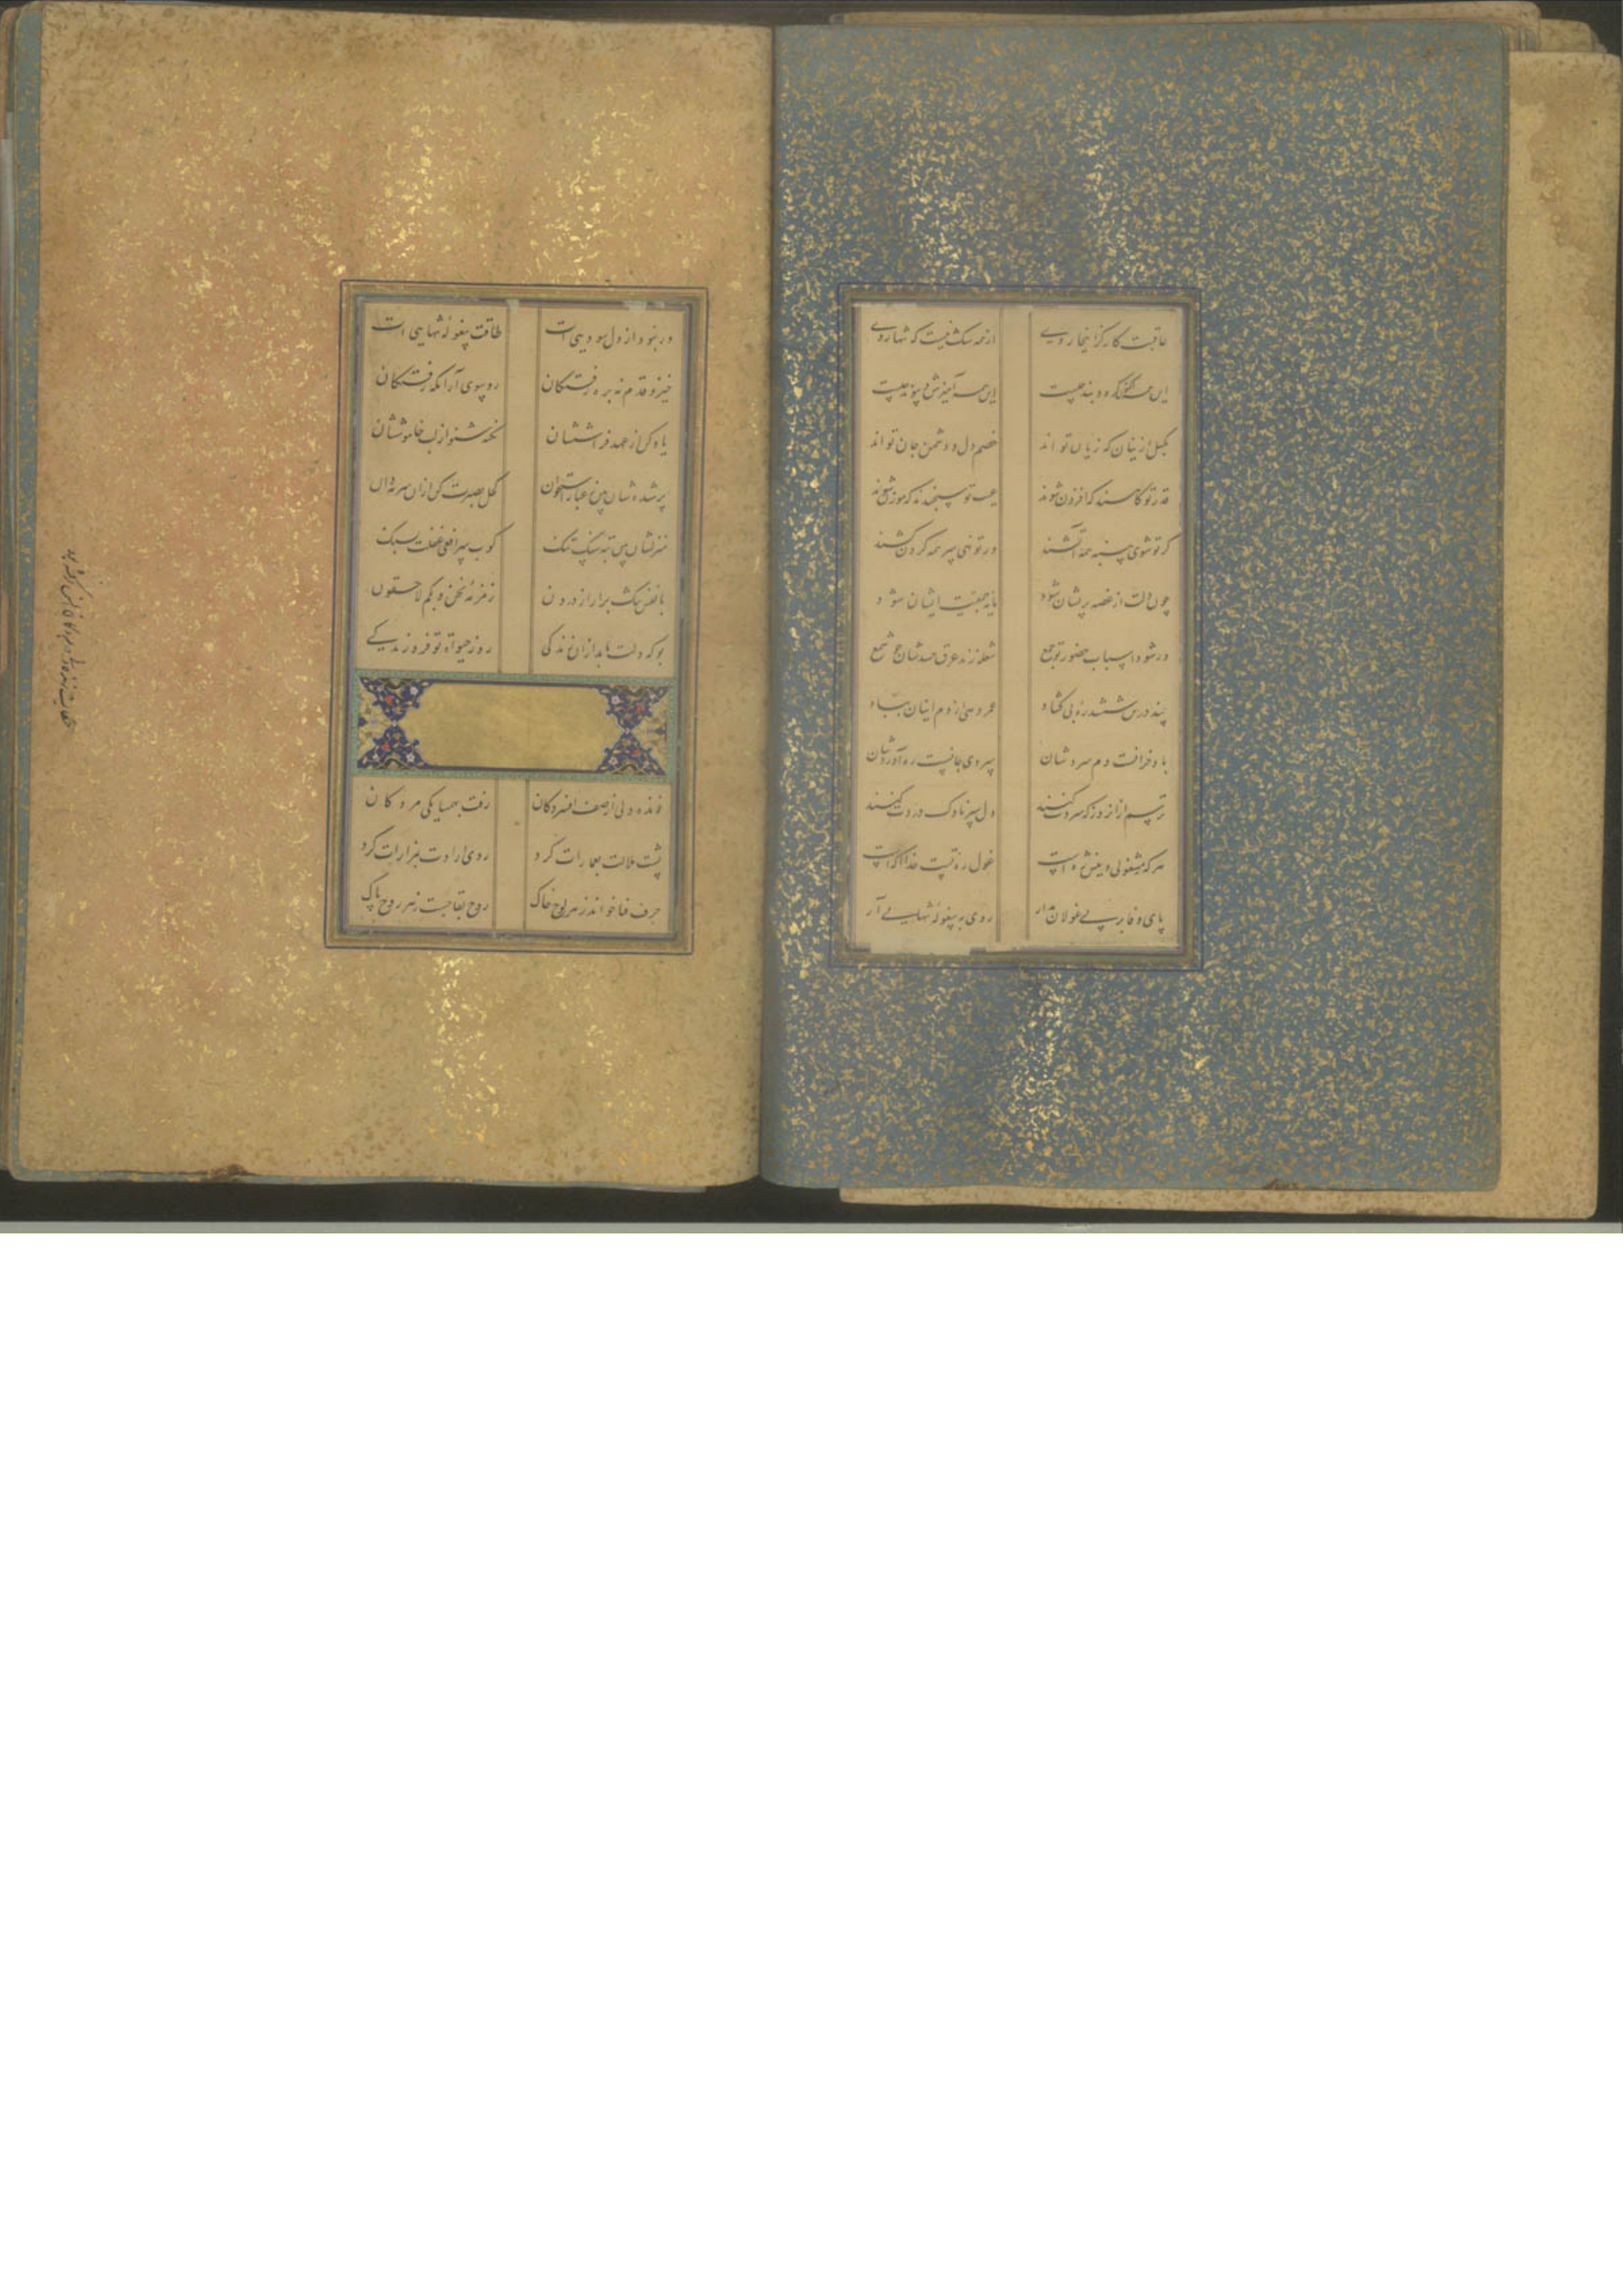 عاقبت کار کز اینجا روی
از همه شک نیست که تنها روی
این همه گره و بند چیست
این همه آمیزش و پیوند چیست
بکسل ازینان که زیان تو اند
خصم دل و دشمن جان تو اند
قدر تو کاهند که افزون شوند
عیب تو سنجند که موزون شوند
کر تو شوی پنبه همه آتشند
ور تو نهی سر همه کردن کشند
چون دلت از غصه پریشان شود
مایه جمعیت ایشان شود
ور شود اسباب حضور تو جمع
شعله زند عرق حسدشان چو شمع
چند درین ششدره بی کشاد
عمر دهی از دم اینان بباد
باد خرافت دم سردشان
سردی جانست ره آوردشان
ترسم از آن روز که سردت کنند
دل سپر ناوک دردت کنند
هر که بمشغولی دینش ره است
غول ره تست خدا آکه است
پای وفا بر پی غولان مدار
روی به پیغوله تنهایی آر
ور نبود از دل سودایی ات
طاقت پیغوله تنهایی ات
خیز و قدم نه بره رفتکان
رو بسوی آرامکه رفتکان
یاد کن از عهد فرامششان
نکته شنو از لب خاموششان
پر شده شان بین ز غبار استخوان
کحل بصیرت کن از آن سرمه دان
منزلشان بین ته سنک تنک
کوب سر افعی غفلت بسنک
با نفس پاک برار از درون
زمزمه نحن بکم لاحقون
بو که دلت یابد از آن زندکی
روز حیوة تو فروزندکی
زنده دلی از صف افسردکان
رفت بهمسایکی مردکان
پشت ملالت بعمارات کرد
روی ارادت بمزارات کرد
حرف فنا خواند ز هر لوح خاک
روح بقا جست ز هر روح پاک
حکایت زنده دل